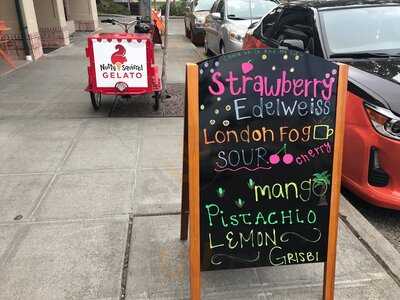 Nutty Squirrel
GELATO
Strawberry
Edelweiss
London Fog
SOUR cherry
mango
PISTACHIO
LEMON
GRISBI